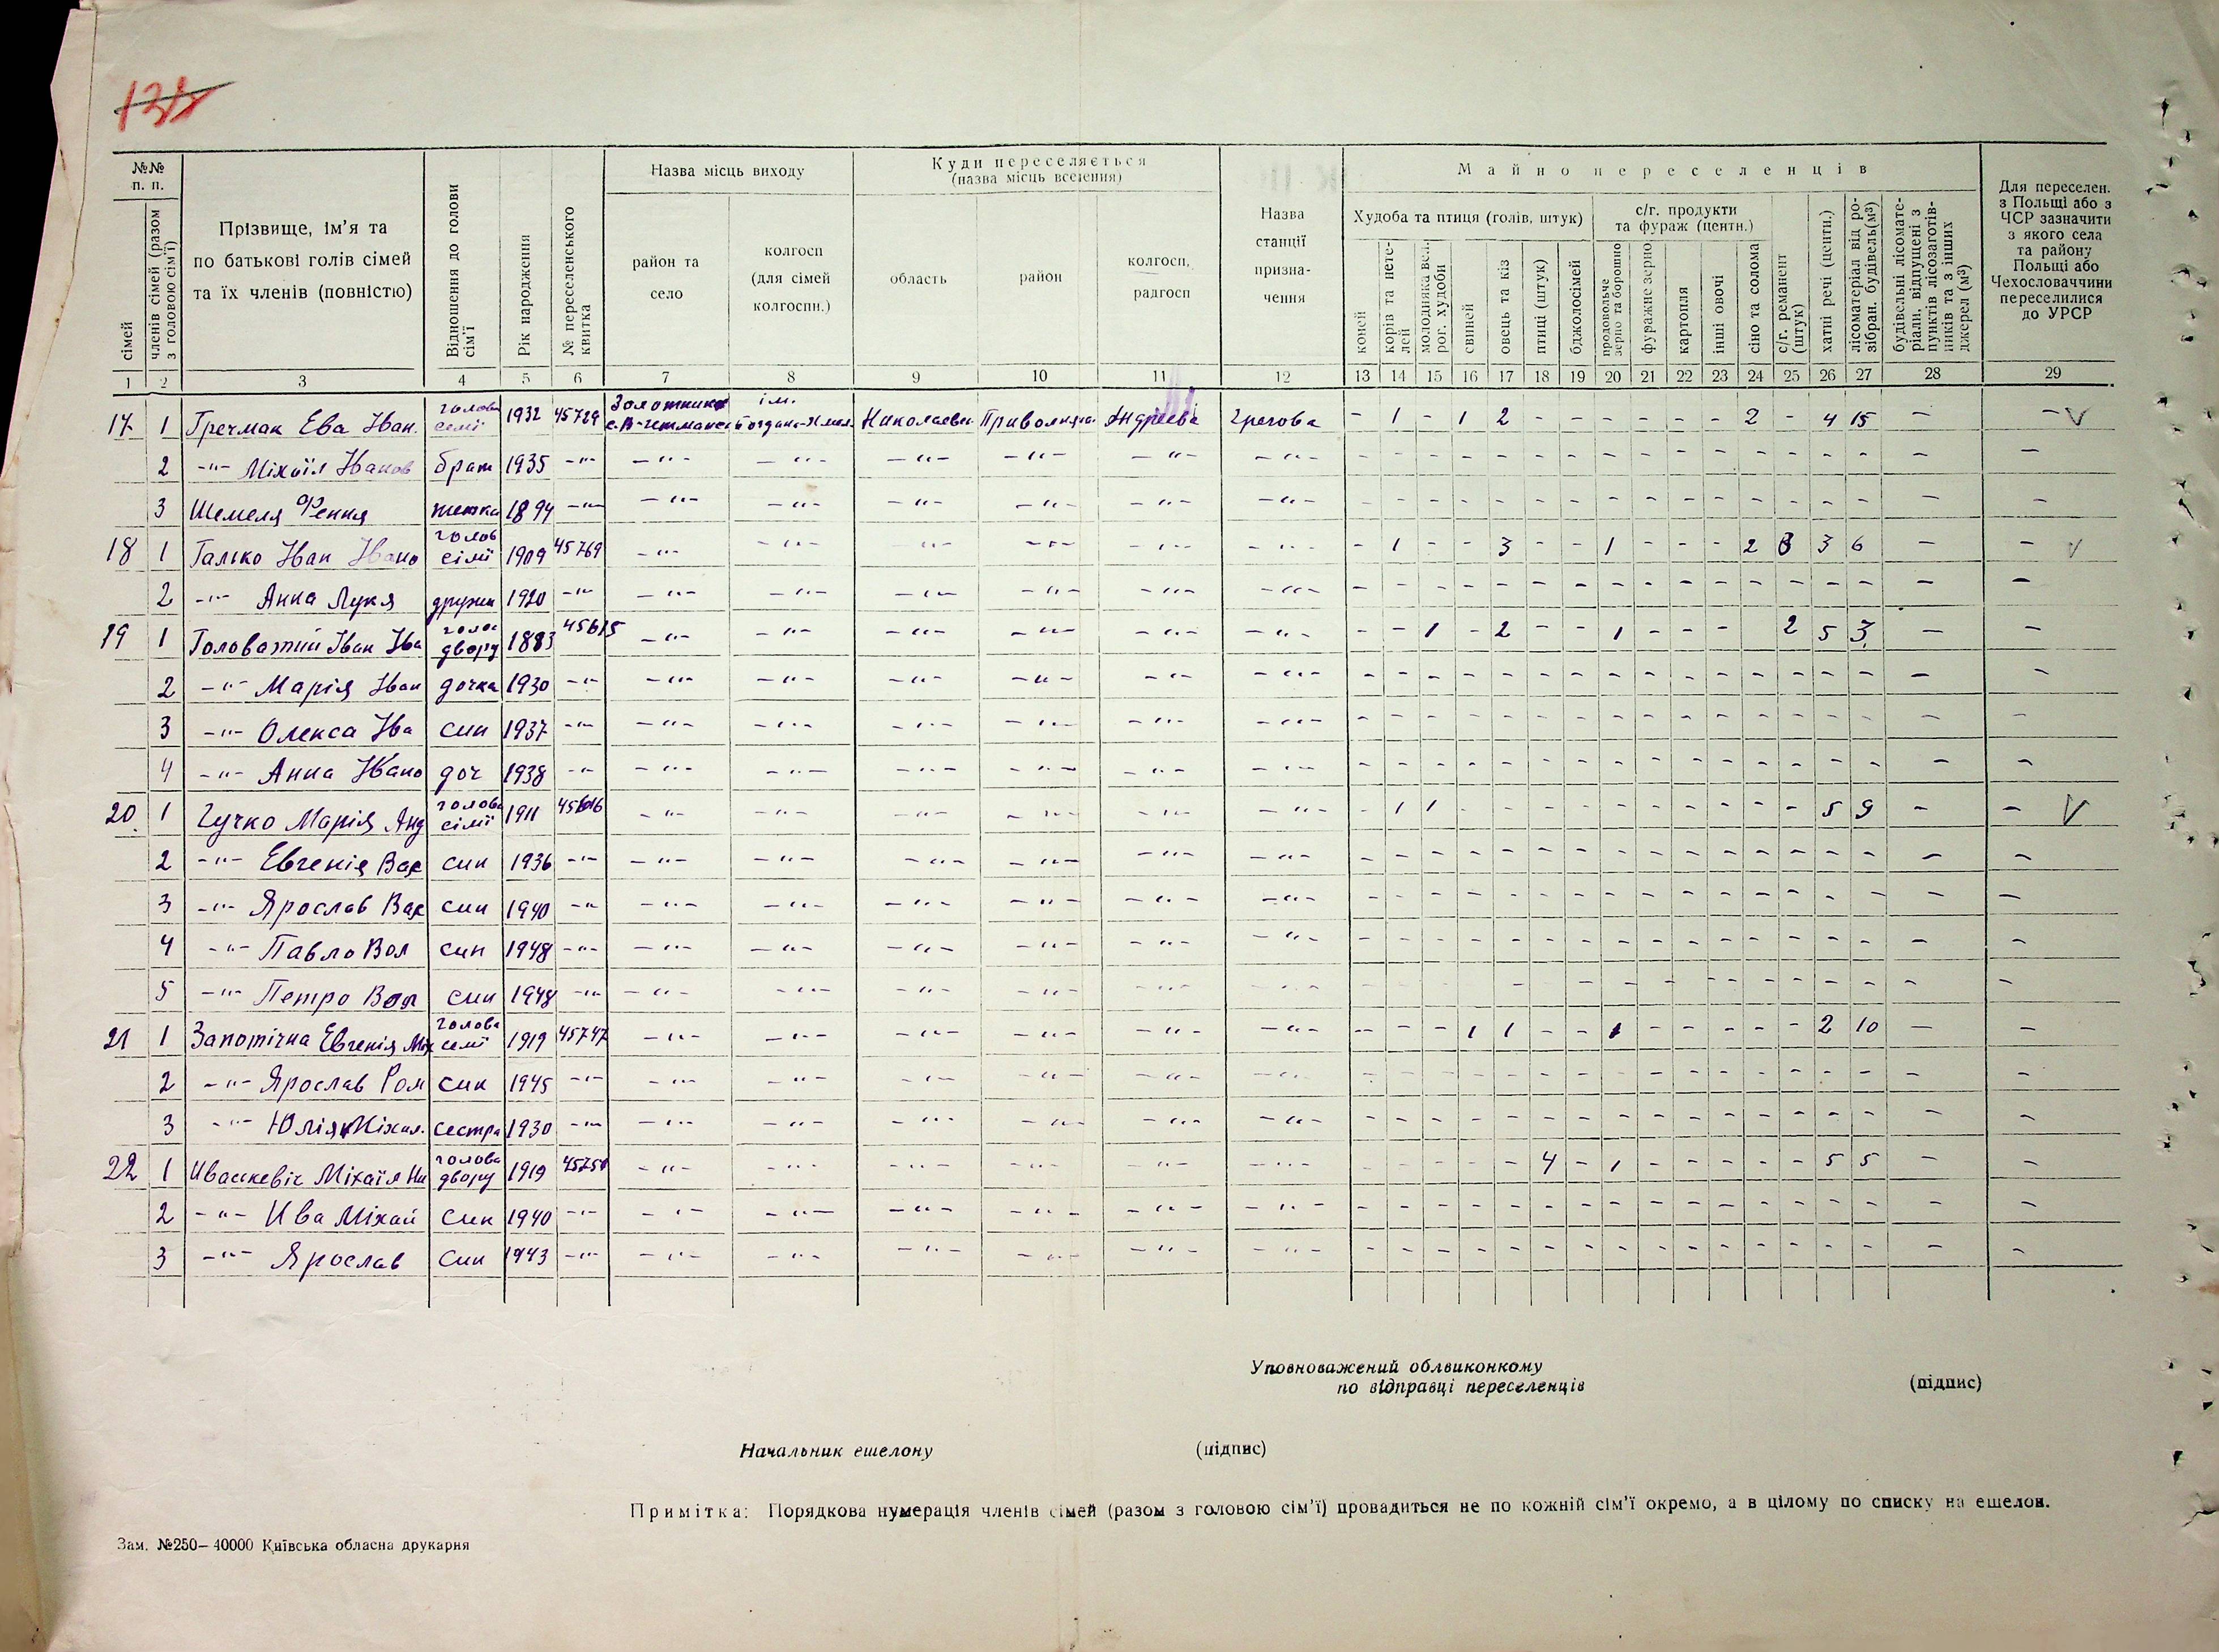 135
№№ п. п.
сімей
членів сімей (разом з головою сім'ї)
Прізвище, ім'я та по батькові голів сімей та їх членів (повністю)
Відношення до голови сім'ї
Рік народження
№ переселенського квитка
Назва місць виходу
район та село
колгосп (для сімей колгоспн.)
Куди переселяється (назва місць вселення)
область
район
колгосп, радгосп
Назва станції призначення
Майно переселенців
Худоба та птиця (голів, штук)
коней
корів та нетелей
молодняка вел. рог. худоби
свиней
овець та кіз
птиці (штук)
бджолосімей
с/г. продукти та фураж (центн.)
продовольче зерно та борошно
фуражне зерно
картопля
інші овочі
сіно та солома
с/г. реманент (штук)
хатні речі (центн.)
лісоматеріал від розібран. будівель (м³)
будівельні лісоматеріали, відпущені з пунктів лісозаготівників та з інших джерел (м³)
Для переселен. з Польщі або з ЧСР зазначити з якого села та району Польщі або Чехословаччини переселилися до УРСР
1 2 3 4 5 6 7 8 9 10 11 12 13 14 15 16 17 18 19 20 21 22 23 24 25 26 27 28 29
17 1 Гречмак Ева Іван. голова семї 1932 45729 ім. Николаевс Андреева Грегова - 1 - 1 2 - - - - - - 2 - 4 15 - - V
2 -"- Міхаїл Іванов брат 1935 -"- -"- -"- -"- -"- -"- -"- - - - - - - - - - - - - - - - - -
3 Шемеля Фення тетка 1894 -"- -"- -"- -"- -"- -"- -"- - - - - - - - - - - - - - - - - -
18 1 Галько Іван Івано голов сімї 1909 45769 -"- -"- -"- -"- -"- -"- - 1 - - 3 - - 1 - - - 2 8 3 6 - - V
2 -"- Анна Лукя дружи 1920 -"- -"- -"- -"- -"- -"- -"- - - - - - - - - - - - - - - - - -
19 1 Головатий Іван Іва голов двору 1883 45615 -"- -"- -"- -"- -"- -"- - - 1 - 2 - - 1 - - - 2 5 3 - -
2 -"- Марія Іван дочка 1930 -"- -"- -"- -"- -"- -"- -"- - - - - - - - - - - - - - - - - -
3 -"- Олекса Іва син 1937 -"- -"- -"- -"- -"- -"- -"- - - - - - - - - - - - - - - - - -
4 -"- Анна Івано доч 1938 -"- -"- -"- -"- -"- -"- -"- - - - - - - - - - - - - - - - - -
20 1 Гучко Марія Анд голова сімї 1911 -"- -"- -"- -"- -"- -"- - 1 1 - - - - - - - - - - 5 9 - - V
2 -"- Евгенія Вас син 1936 -"- -"- -"- -"- -"- -"- -"- - - - - - - - - - - - - - - - - -
3 -"- Ярослав Вас син 1940 -"- -"- -"- -"- -"- -"- -"- - - - - - - - - - - - - - - - - -
4 -"- Павло Вол син 1948 -"- -"- -"- -"- -"- -"- -"- - - - - - - - - - - - - - - - - -
5 -"- Петро Вол син 1948 -"- -"- -"- -"- -"- -"- -"- - - - - - - - - - - - - - - - - -
21 1 Запотічна Евгенія Мих голова семї 1919 45747 -"- -"- -"- -"- -"- -"- - - - 1 1 - - 1 - - - - - 2 10 - -
2 -"- Ярослав Ром син 1945 -"- -"- -"- -"- -"- -"- -"- - - - - - - - - - - - - - - - - -
3 -"- Юлія Міхай. сестра 1930 -"- -"- -"- -"- -"- -"- -"- - - - - - - - - - - - - - - - - -
22 1 Ивашкевіч Міхаїл Ни голова двору 1919 45750 -"- -"- -"- -"- -"- -"- - - - - - 4 - 1 - - - - - 5 5 - -
2 -"- Ива Міхай син 1940 -"- -"- -"- -"- -"- -"- -"- - - - - - - - - - - - - - - - - -
3 -"- Ярослав син 1943 -"- -"- -"- -"- -"- -"- -"- - - - - - - - - - - - - - - - - -
Уповноважений облвиконкому
по відправці переселенців (підпис)
Начальник ешелону (підпис)
Примітка: Порядкова нумерація членів сімей (разом з головою сім'ї) провадиться не по кожній сім'ї окремо, а в цілому по списку на ешелон.
Зам. №250—40000 Київська обласна друкарня